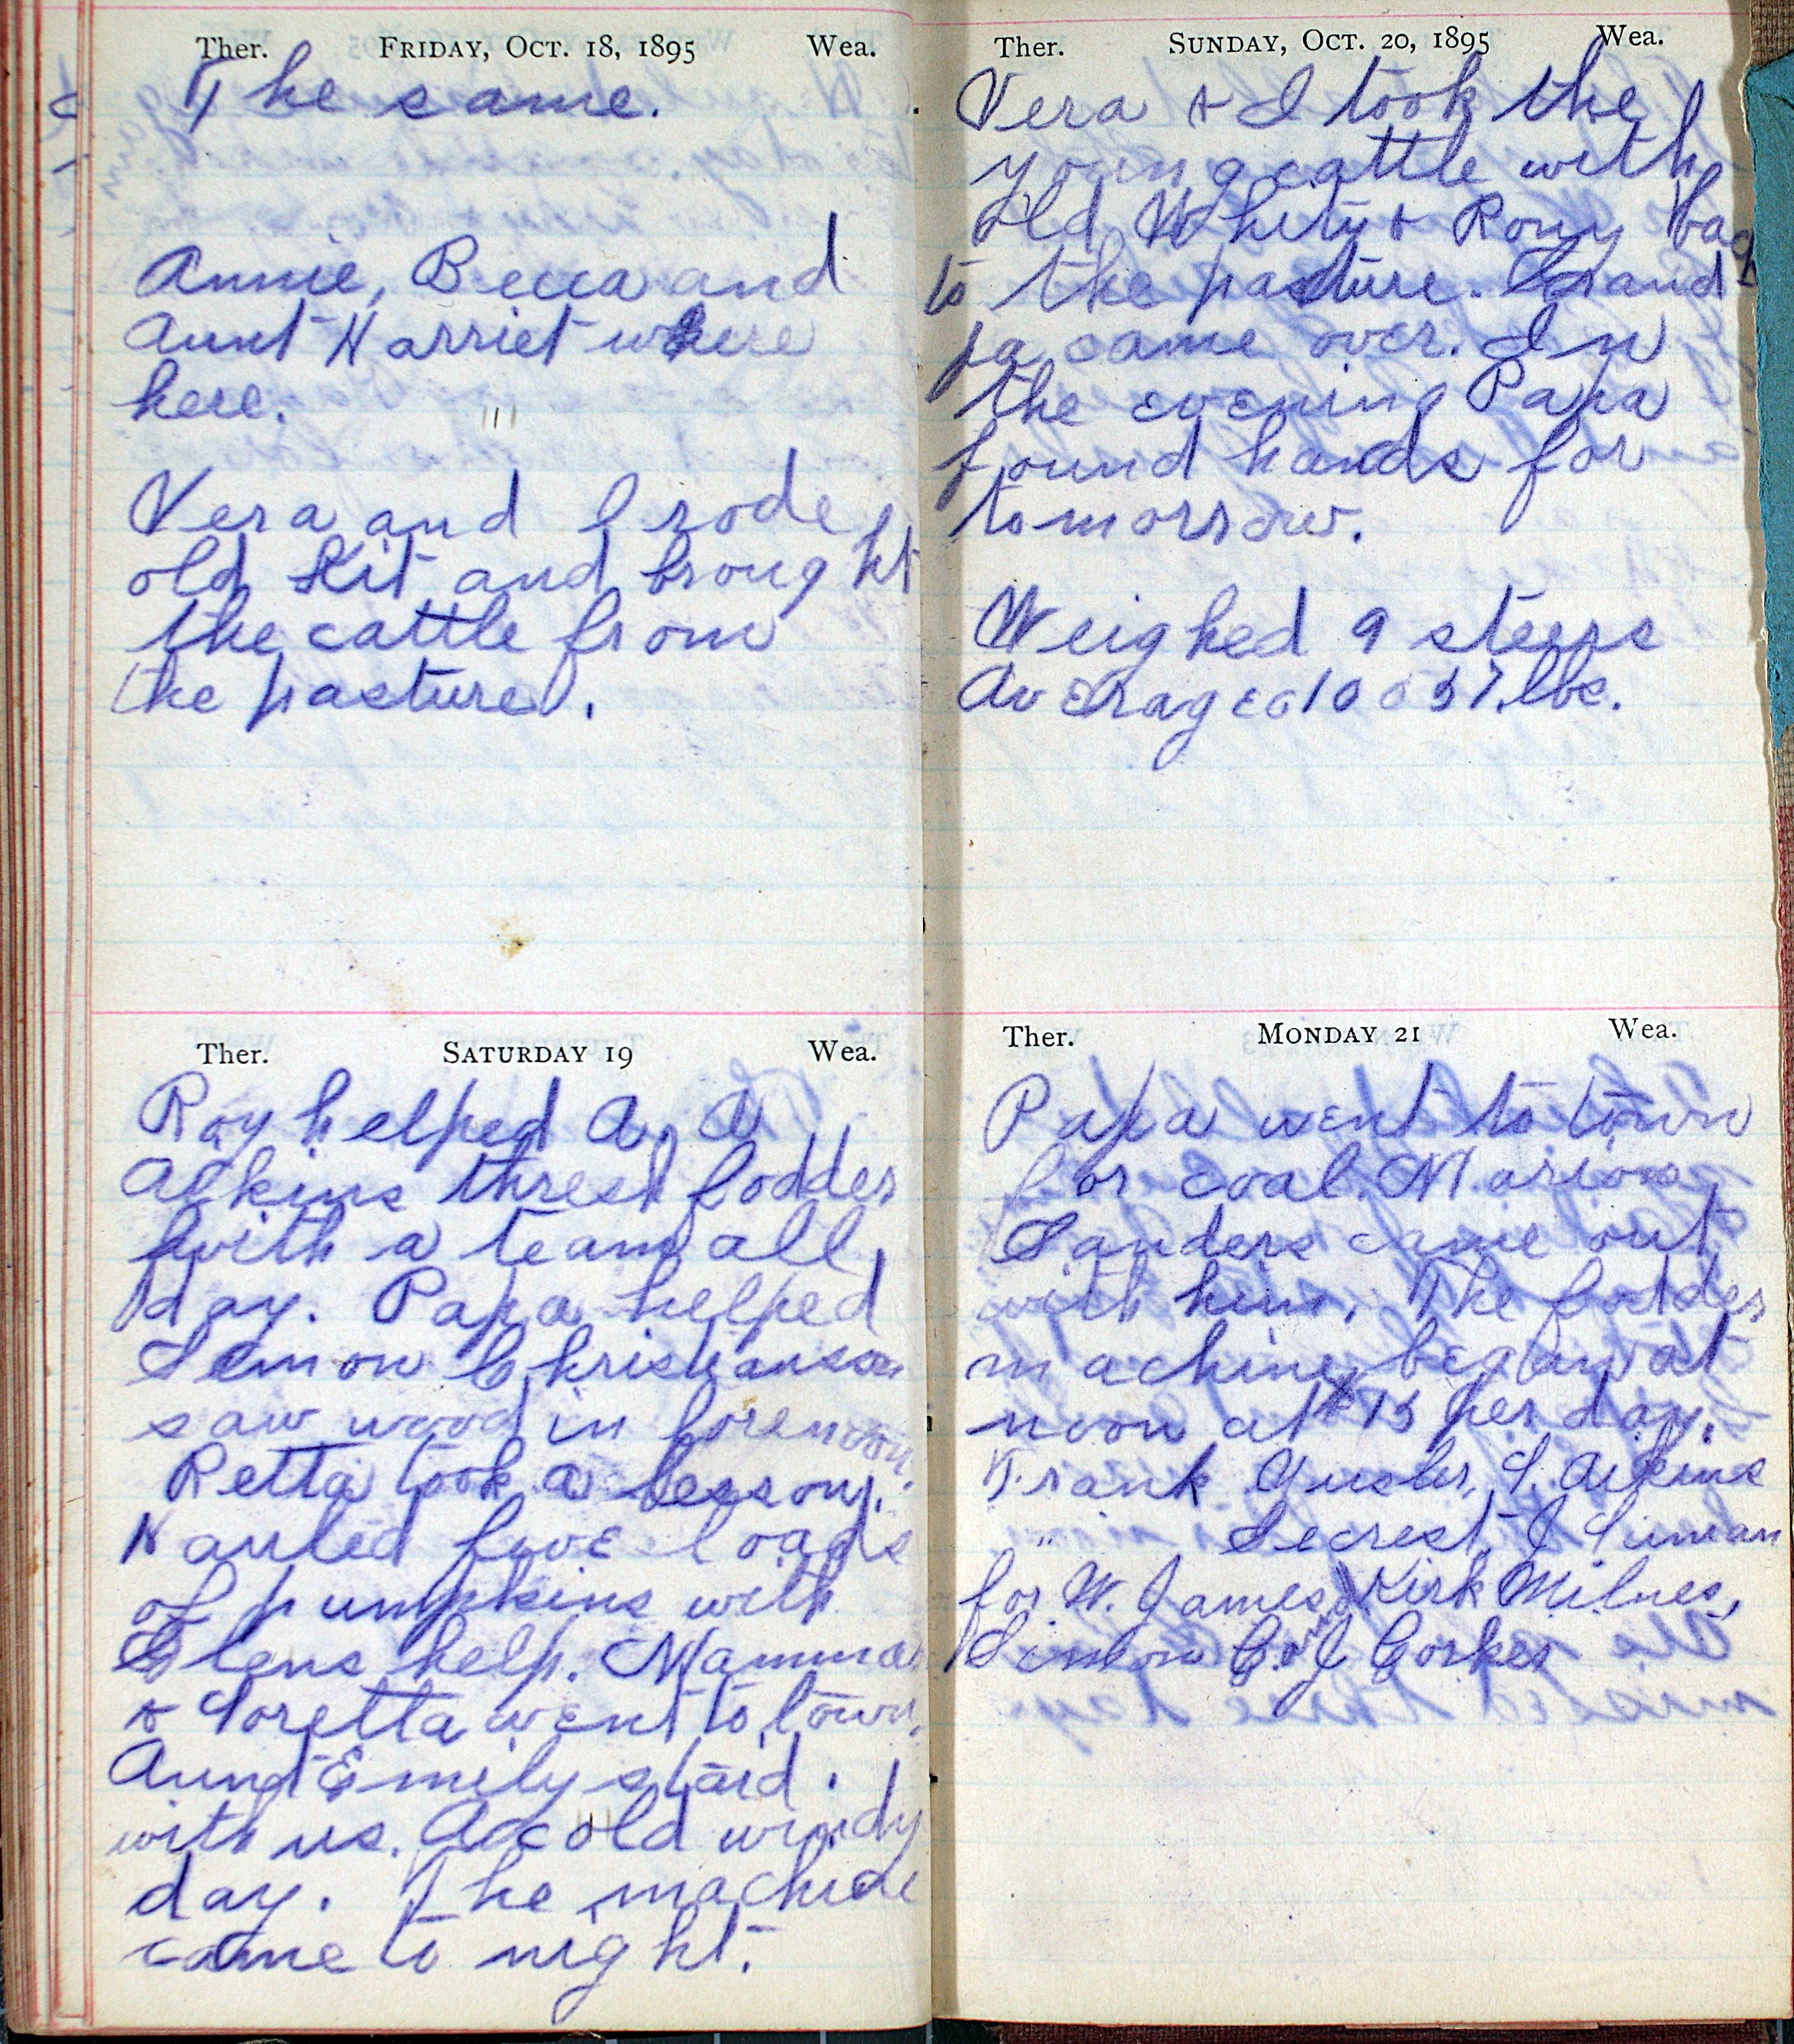 Ther. FRIDAY, OCT. 18, 1895 Wea.
The same.
Annie, Becca and
Aunt Harriet where
here.
Vera and I rode
old Kit and brought
the cattle from
the pasture.
Ther. SATURDAY 19 Wea.
Roy helped A. A.
Adkins thresh fodder
with a team all
day. Papa helped
Semon Christianson
saw wood in forenoon.
Retta took a lesson.
Hauled five loads
of pumpkins with
Glens help. Mamma
& Loretta went to town.
Aund Emily staid
with us. A cold windy
day. The machine
came to night.
Ther. SUNDAY, OCT. 20, 1895 Wea.
Vera & I took the
young cattle with
Old Whity & Rony back
to the pasture. Grand
pa came over. In
the evening Papa
found hands for
tomorrow.
Weighed 9 steers
Averaged 1057 lbs.
Ther. MONDAY 21 Wea.
Papa went to town
for coal. Marion
Sanders came out
with him. The fodder
machine began at
noon at $15 per day.
Frank
" Secrest, J
for W. James, Kirk Milnes,
Simon C. & J